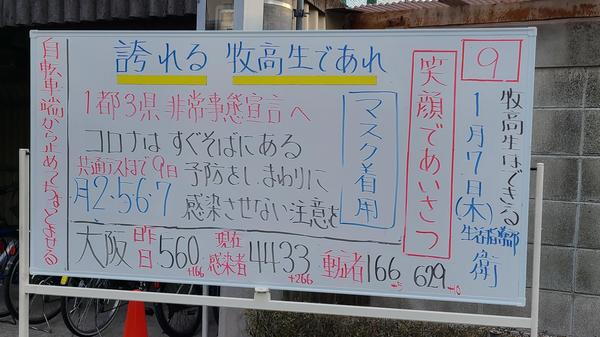 誇れる 牧高生であれ
9
牧高生はできる
1月7日(木)
生活指導部
衛
笑顔であいさつ
マスク着用
1都3県 非常事態宣言へ
コロナは すぐそばにある
予防をし、まわりに
感染させない注意を
共通テストまで9日
月2:56.7
大阪 昨日 560 +166 現在感染者 4433 +266 重傷者 166 629 +10
自転車端から止めつちなどとませる